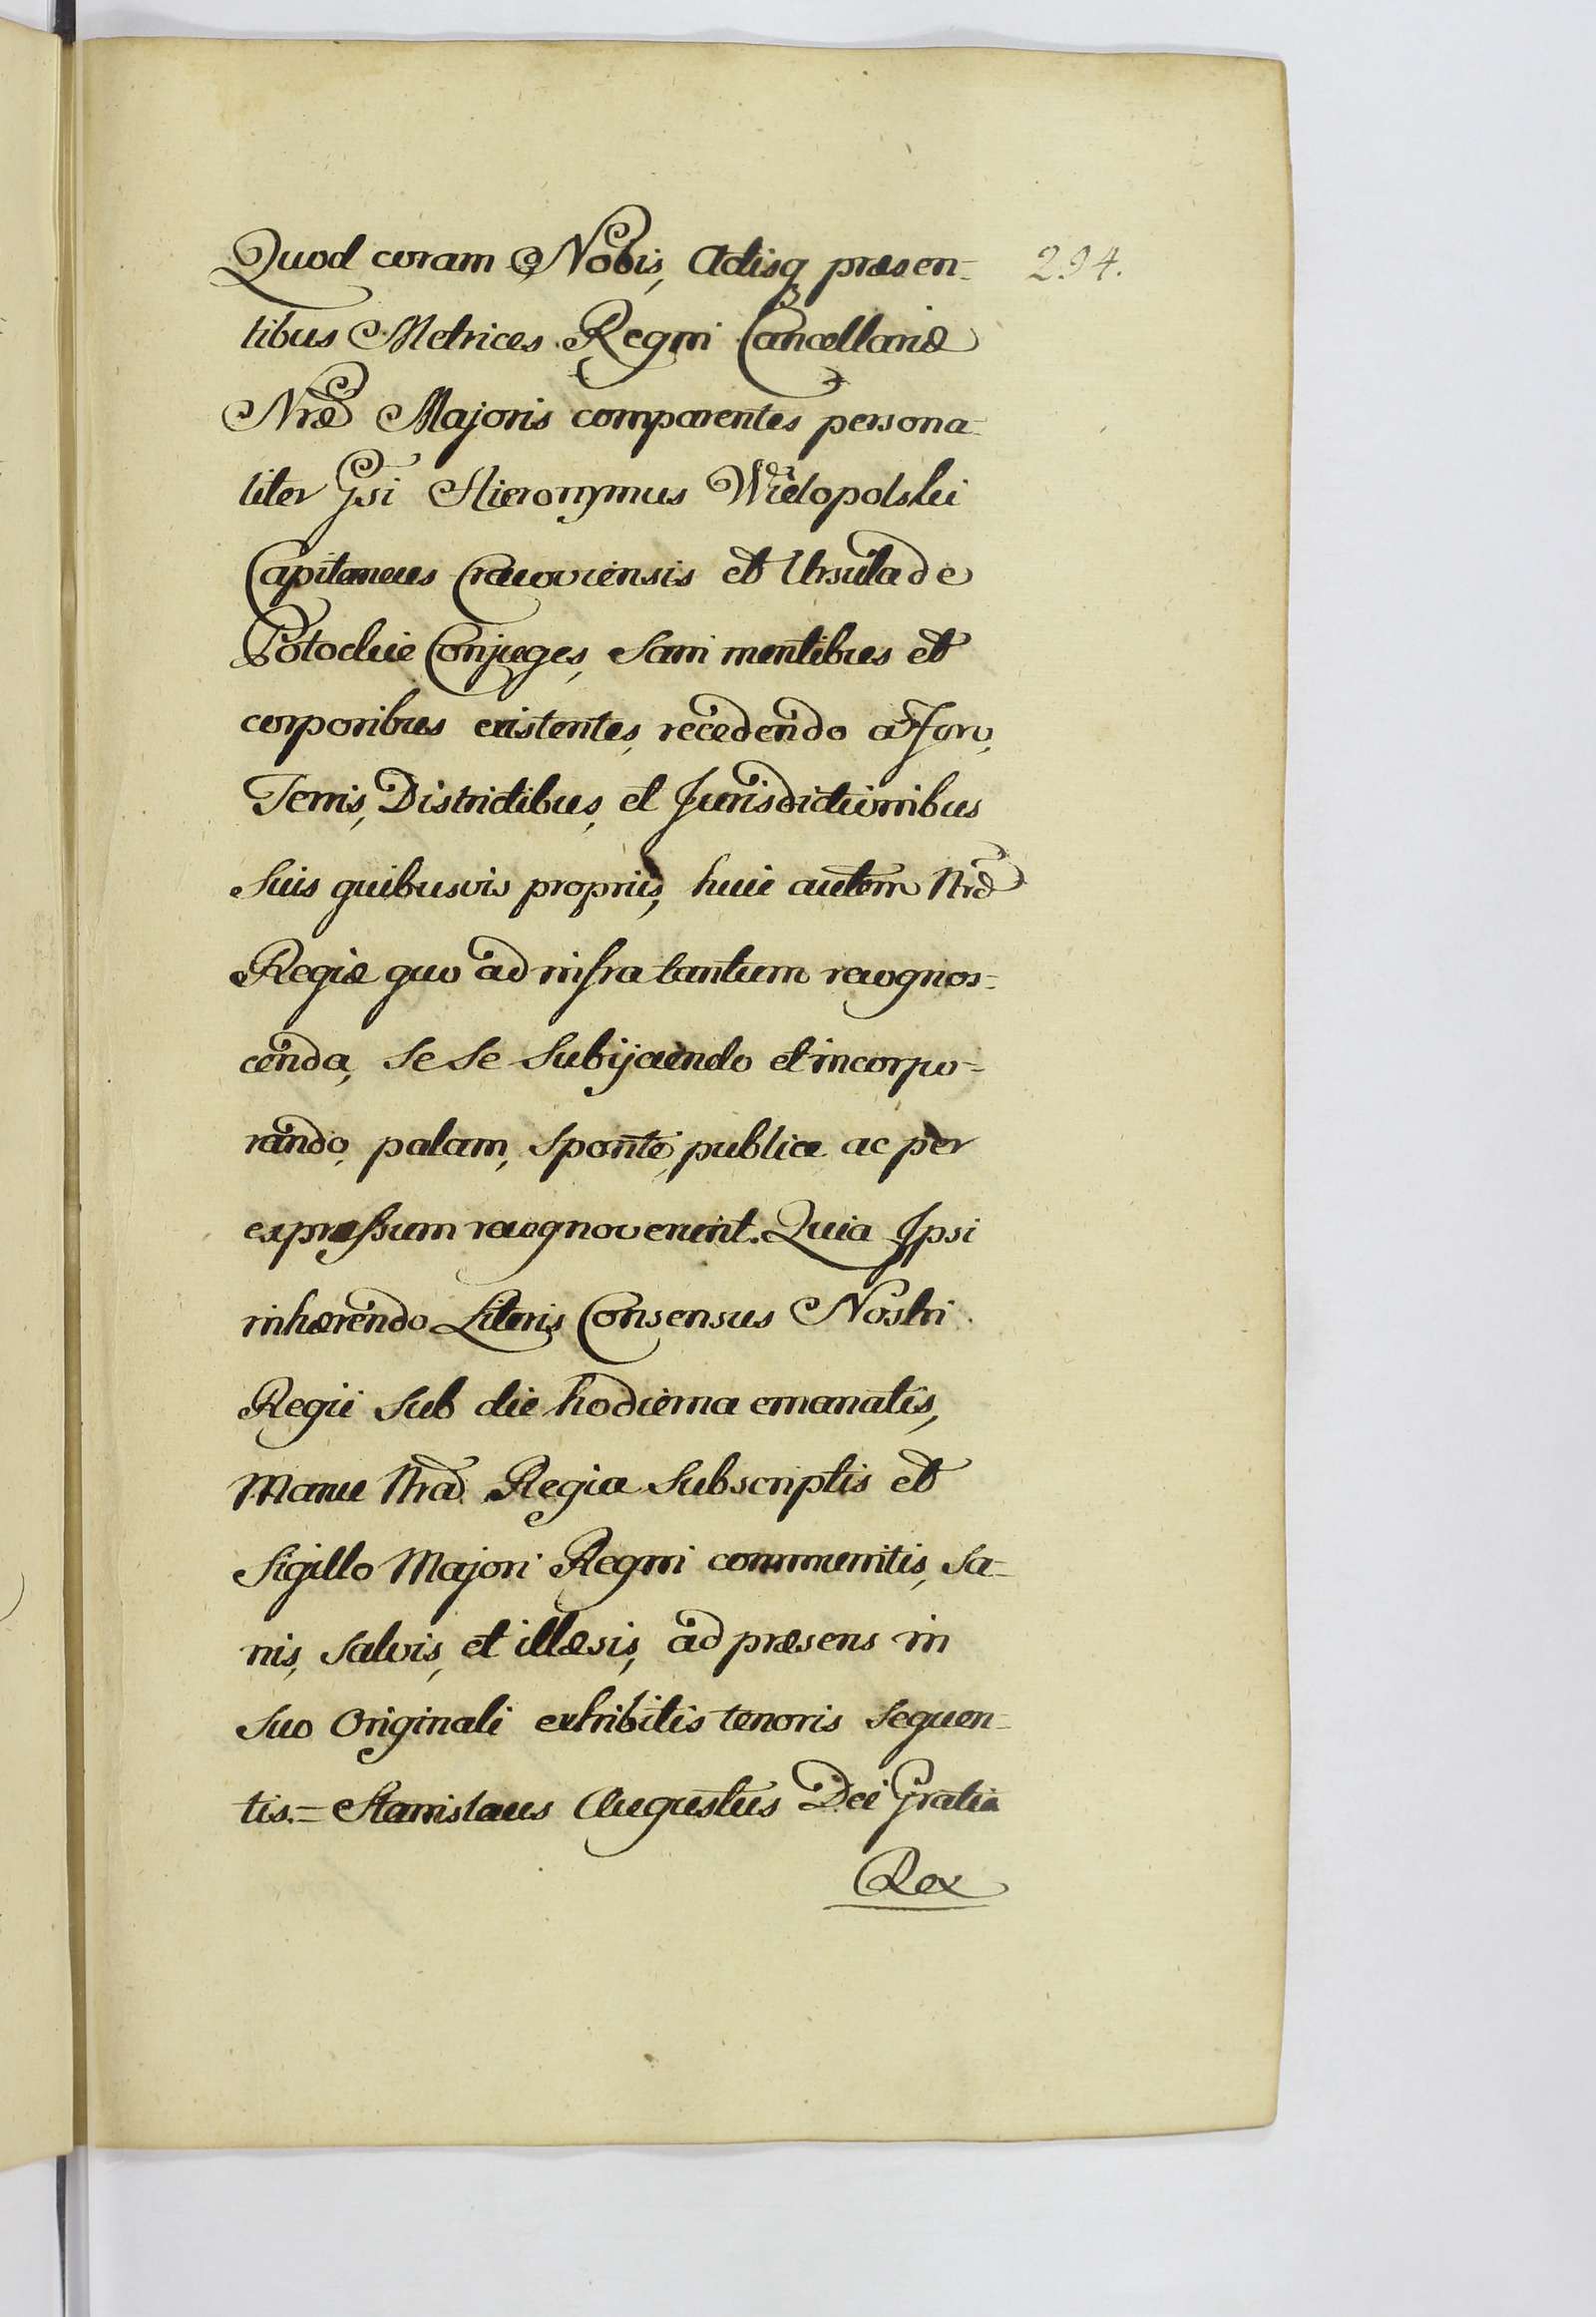 Quod coram Nobis, Actisq præsen- 294.
tibus Metrices Regni Cancellariæ
Nræ Majoris comparentes persona-
liter Gsi Hieronymus Wielopolski
Capitaneus Cracoviensis et Ursula de
Potockie Conjuges, sani mentibus et
corporibus existentes, recedendo a Foro,
Terris, Districtibus, et Jurisdictionibus
suis quibusvis propriis, huic autem Nræ
Regiæ quo ad infra tantum recognos-
cenda, se se subijciendo et incorpo-
rando, palam, sponte, publice ac per
expressum recognoverunt. Quia Ipsi
inhærendo Literis Consensus Nostri
Regii sub die hodierna emanatis,
Manu Nra Regia subscriptis et
Sigillo Majori Regni communitis, sa-
nis, salvis, et illæsis, ad præsens in
suo Originali exhibitis tenoris sequen-
tis.= Stanislaus Augustus Dei Gratia
Rex